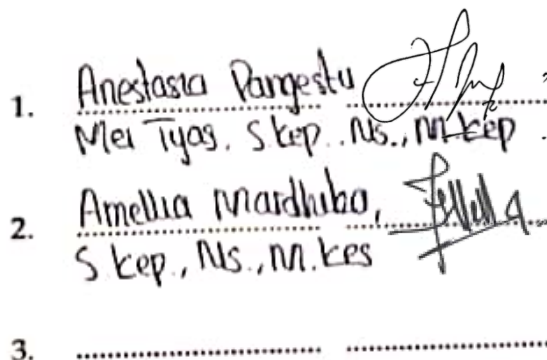 1. Anestasia Pangestu
Mei Tyas, S.kep., Ns., M.kep
2. Amellia Mardhika,
S.kep., Ns., M.kes
3.